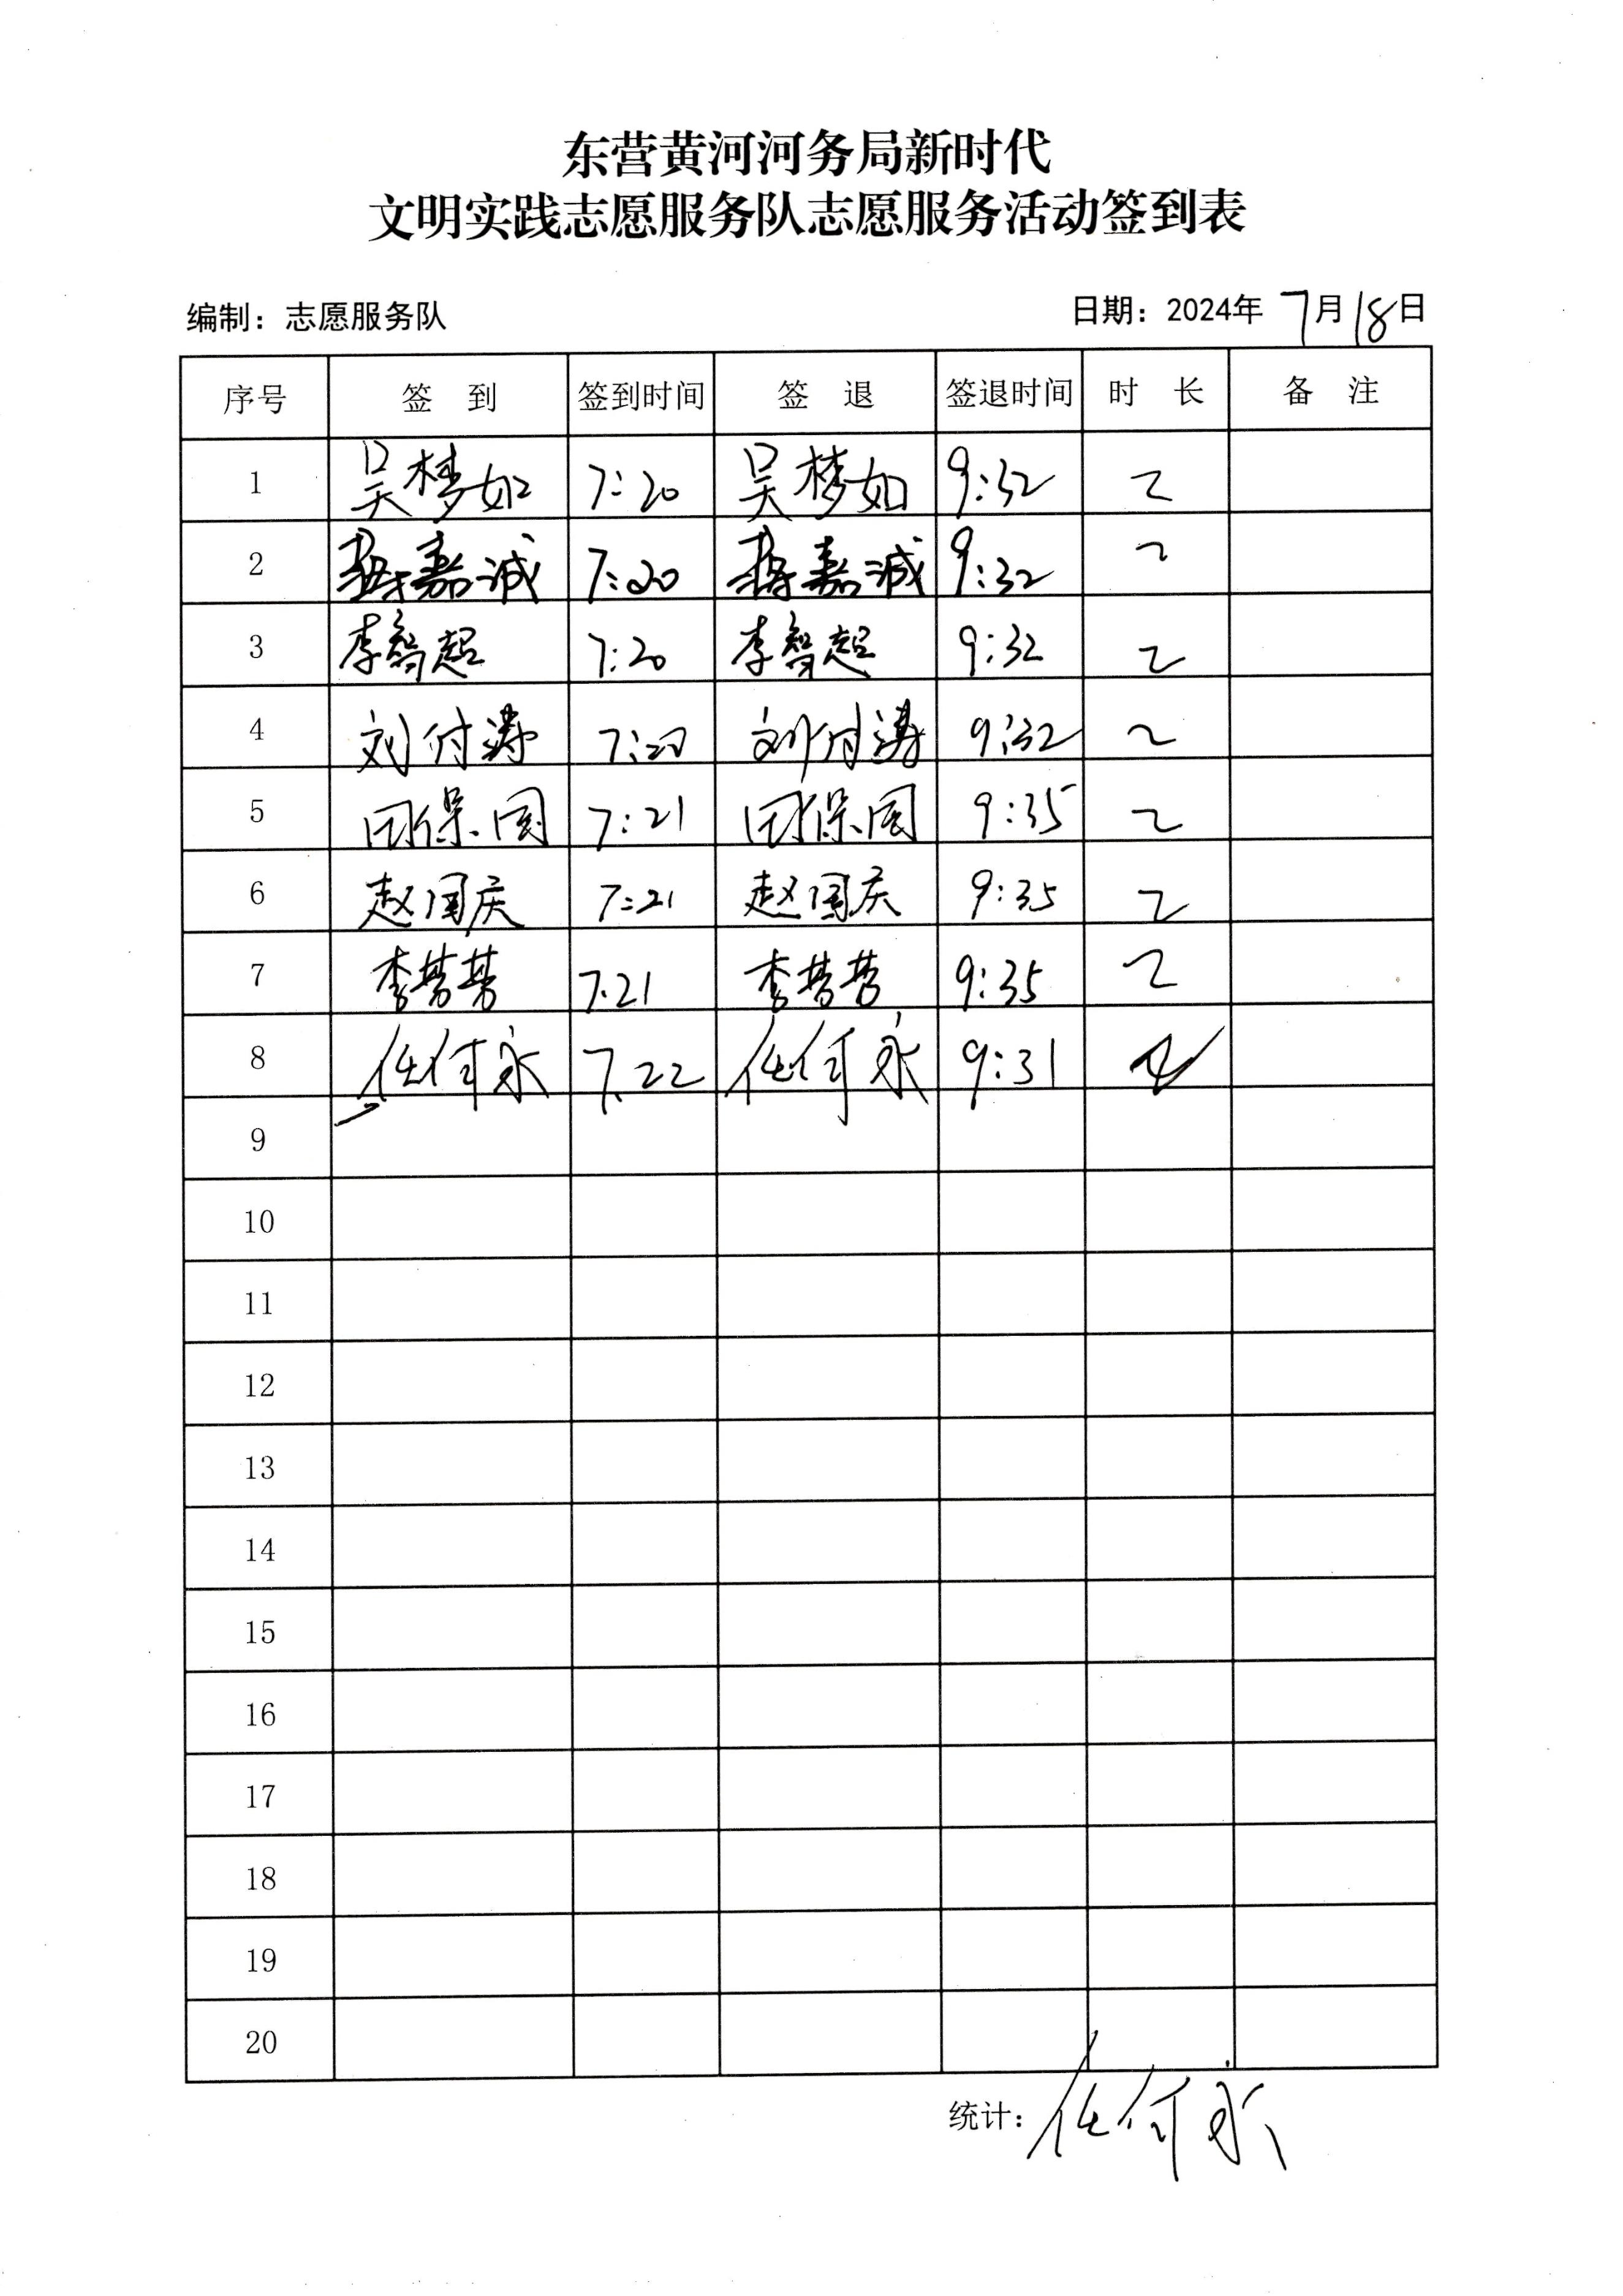 东营黄河河务局新时代
文明实践志愿服务队志愿服务活动签到表
编制：志愿服务队 日期：2024年 7月18日
序号 签 到 签到时间 签 退 签退时间 时 长 备 注
1 吴梦如 7:20 吴梦如 9:32 2
2 嘉诚 7:20 嘉诚 9:32 2
3 李智超 7:20 李智超 9:32 2
4 刘付涛 7:20 刘付涛 9:32 2
5 田保国 7:21 田保国 9:35 2
6 赵国庆 7:21 赵国庆 9:35 2
7 李芳芳 7.21 李芳芳 9:35 2
8 任何永 7.22 任何永 9:31 2
9
10
11
12
13
14
15
16
17
18
19
20
统计：任何永